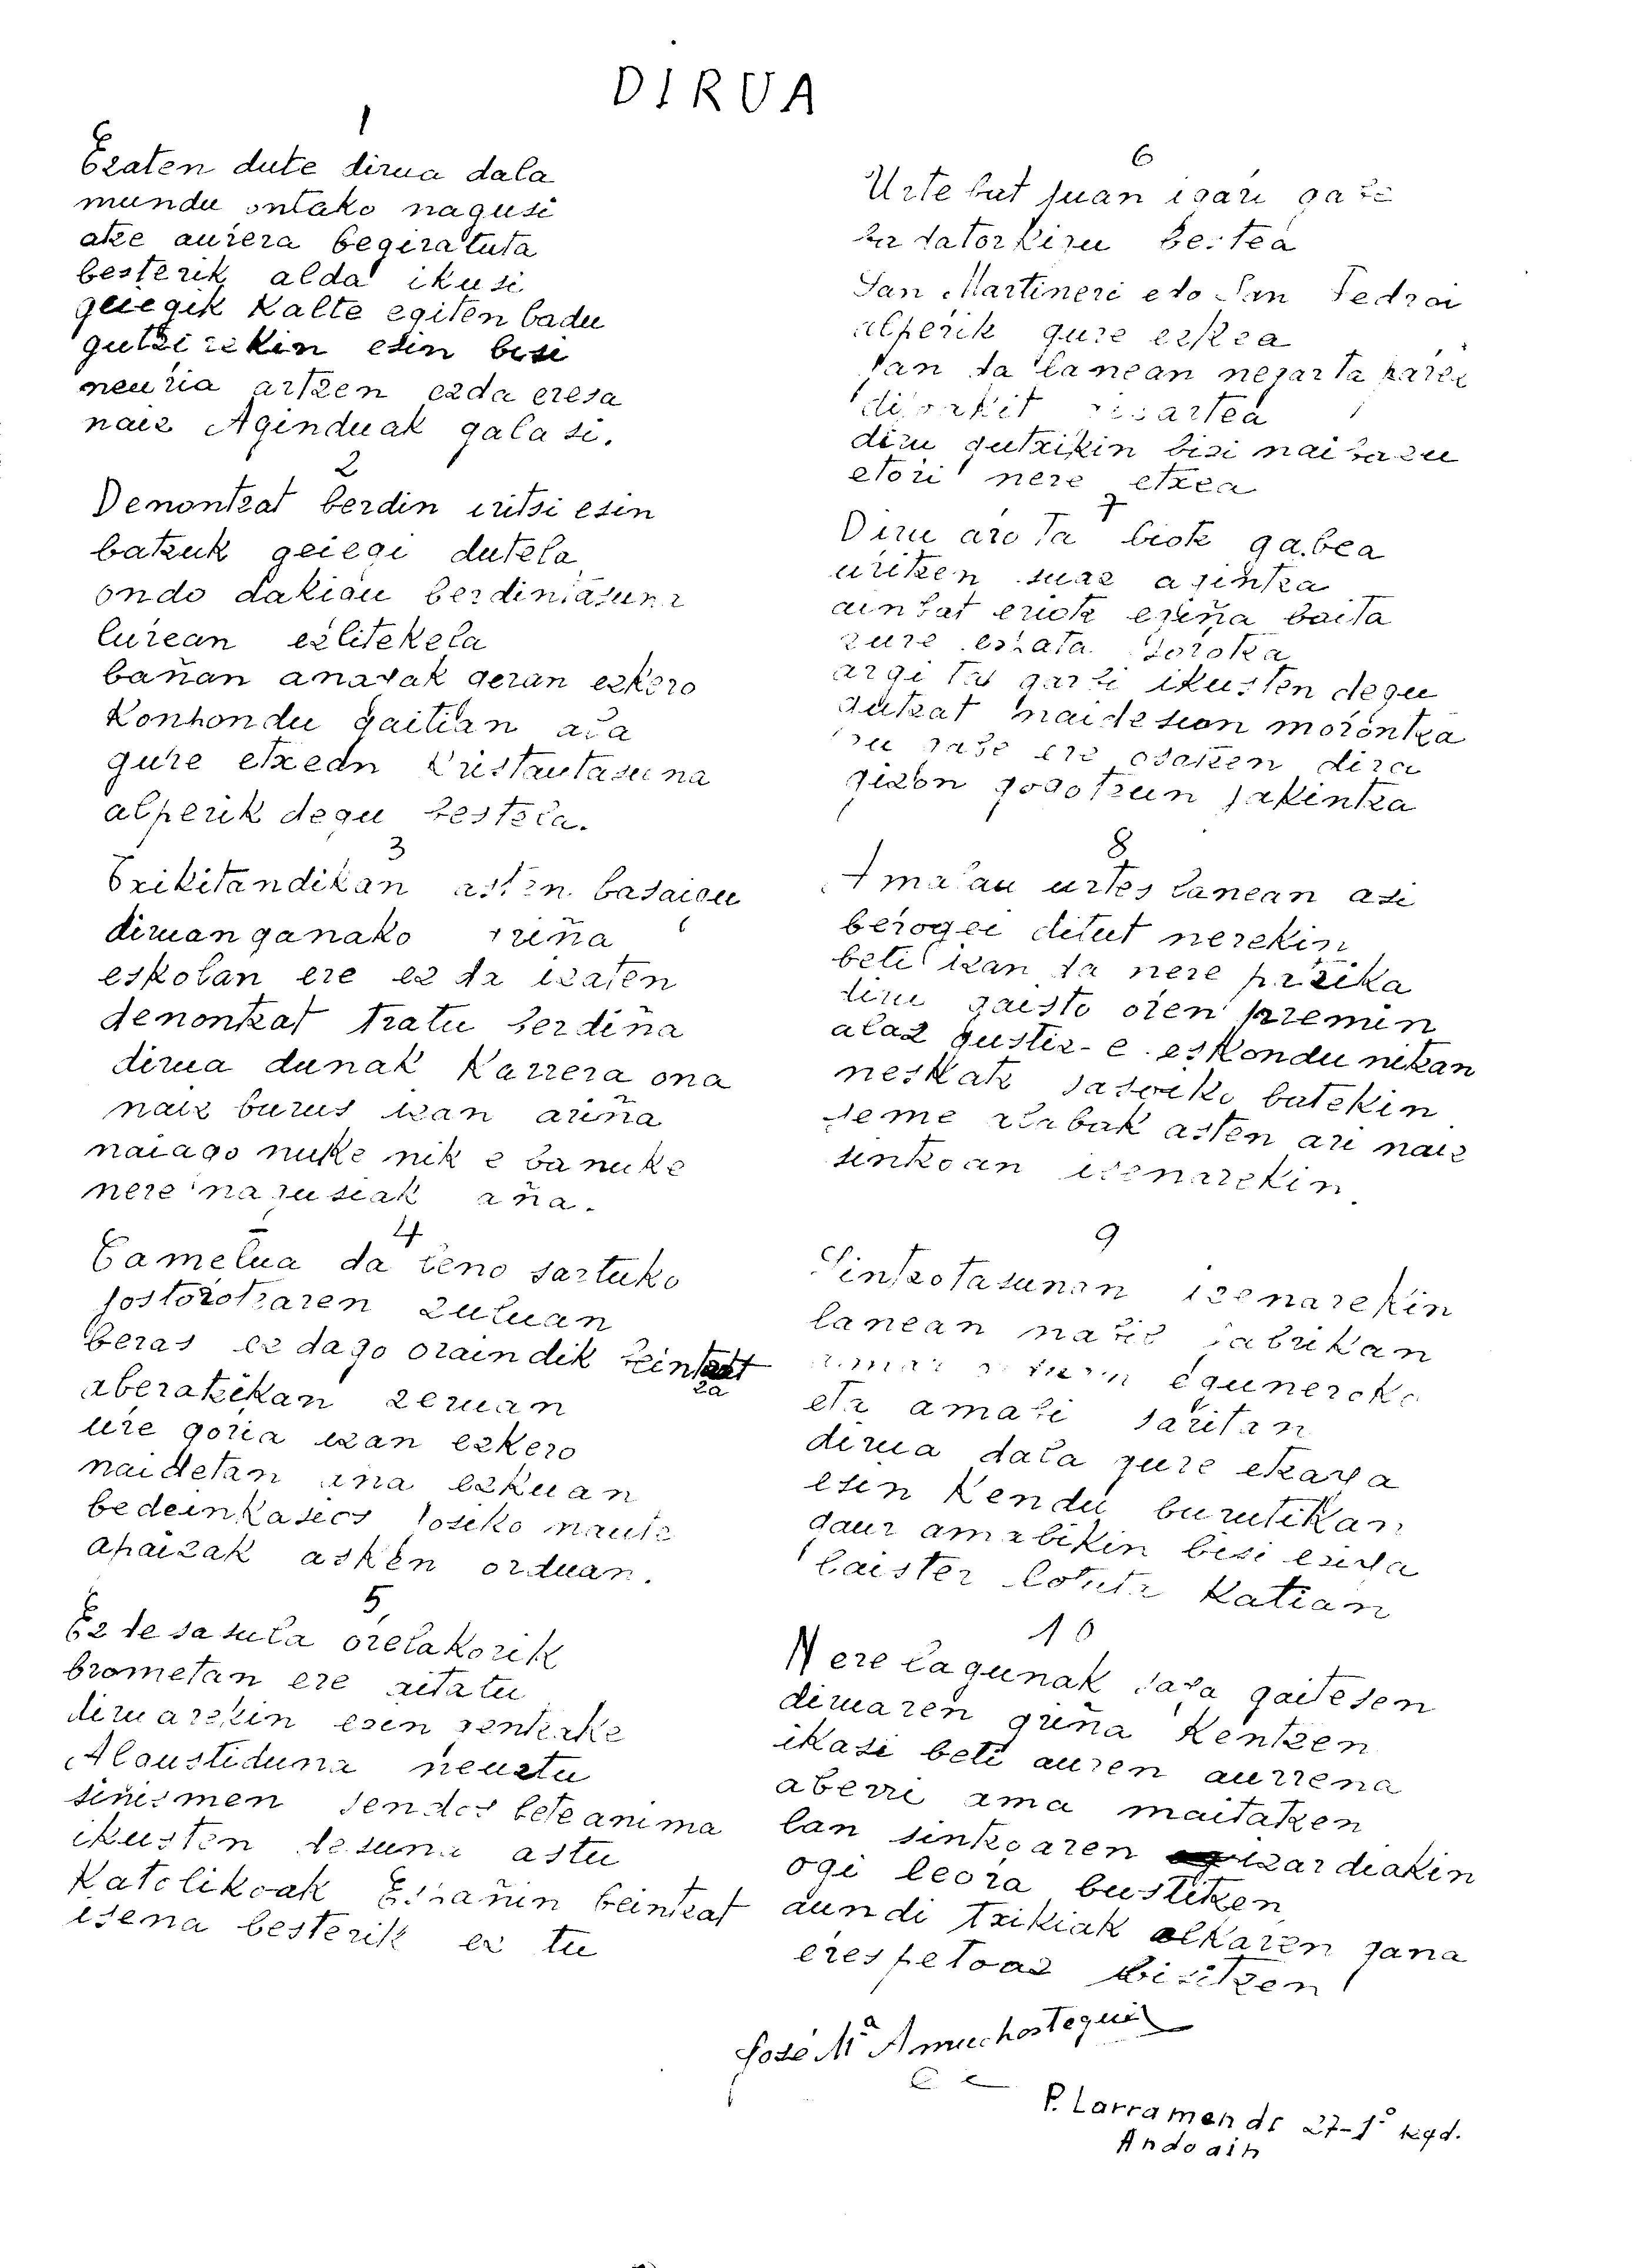 DIRUA
1
Ezaten dute dirua dala
mundu ontako nagusi
atze aúrera begiratuta
besterik alda ikusi
geiegik kalte egiten badu
gutxirekin esin bisi
neuŕia artzen ezda eresa
naiz Aginduak galasi.
2
Denontzat berdin iritsi esin
batzuk geiegi dutela
ondo dakigu berdintasuna
luŕean ezlitekela
bañan anayak geran ezkero
Konpondu gaitian ala
gure etxean kristautasuna
alperik degu bestela.
3
Txikitandikan asten basaigu
diruanganako griña
eskolan ere ez da izaten
denontzat tratu berdiña
dirua dunak Karrera ona
naiz burus izan ariña
naiago nuke nik e banuke
nere nagusiak aña.
4
Gamelua da leno sartuko
jostoŕotzaren zuluan
beras ez dago oraindik beintzat
aberatzikan zeruan
uŕe goŕia izan ezkero
naidetan ina ezkuan
bedeinkasios josiko naute
apaizak asken orduan.
5
Ez desasula orelakorik
brometan ere aitatu
diruarekin esin zentzake
Algustiduna neurtu
siñismen sendos bete anima
ikusten desuna astu
Katolikoak Españin beintzat
isena besterik ez tu
6
Urte bat juan igaŕi gabe
ba datorkizu bestea
San Martineri edo San Pedroi
alperik gure eskea
jan da lanean negarta paŕez
diru gutxikin bisi naibazu
etoŕi nere etxea
7
Diru aŕo ta biotz gabea
uŕitzen suaz agintza
ainbat eriotz egiña baita
zure ezpata zoŕotza
argi ta garbi ikusten degu
gutzat naidesun moŕontza
diru gabe ere osatzen dira
gizon gogotsun jakintza
8
Amalau urtes lanean asi
beŕogei ditut nerekin
beti izan da nere pizika
diru gaisto oŕen premin
alaz gustiz-e eskondu nitzan
neskatz sasoiko batekin
seme alabak asten ari naiz
sintzoan izenarekin.
9
Sintzotasunan izenarekin
lanean nabil fabrikan
eguneroko
eta amabi saŕitan
dirua dala gure etzaya
esin Kendu burutikan
gaur amabikin bisi esiña
laister lotuta Katian
10
Nere lagunak saya gaitesen
diruaren griña Kentzen
ikasi beti auŕen aurrena
aberri ama maitatzen
lan sintzoaren izardiakin
ogi legoŕa bustitzen
aundi txikiak alkaren gana
eŕespetoaz bisitzen!
José Mª Amuchastegui
P. Larramendi 27-1º izqd.
Andoain